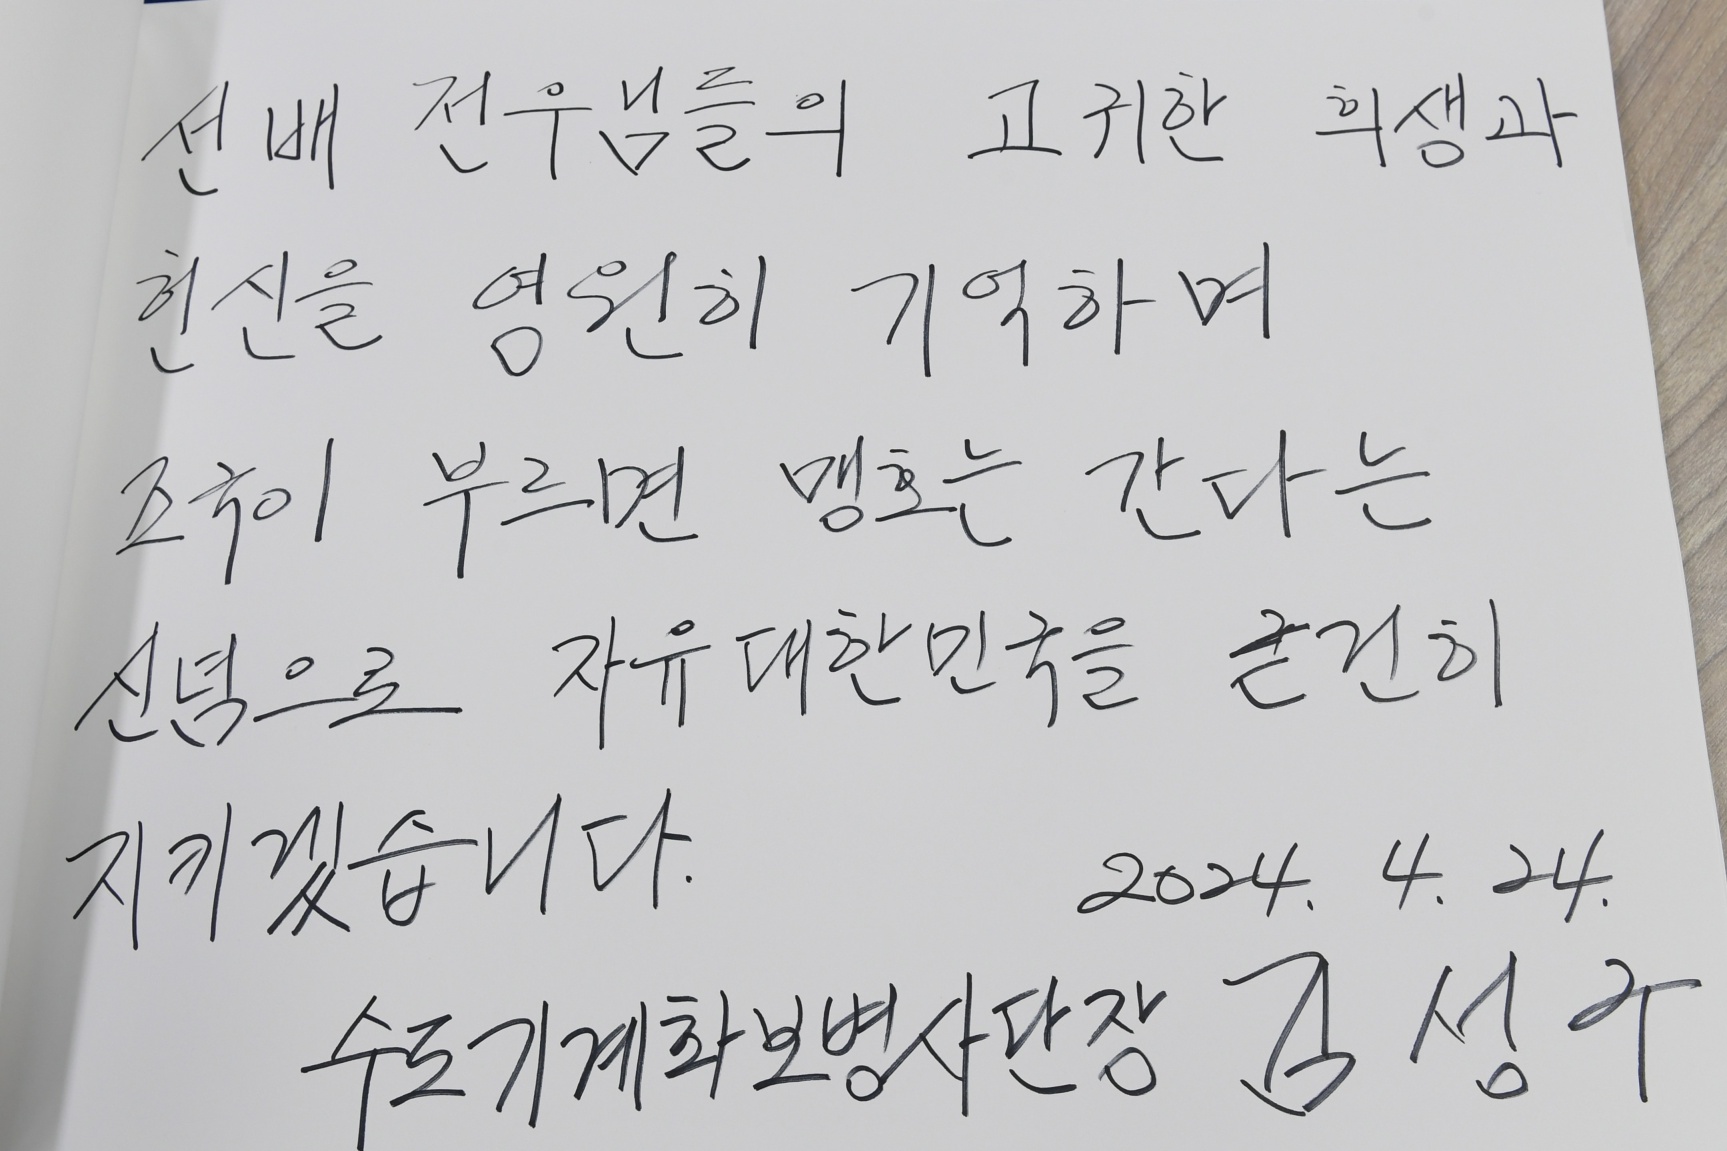 선배 전우님들의 고귀한 희생과
헌신을 영원히 기억하며
조국이 부르면 맹호는 간다는
신념으로 자유대한민국을 굳건히
지키겠습니다.
2024. 4. 24.
수도기계화보병사단장 김성구